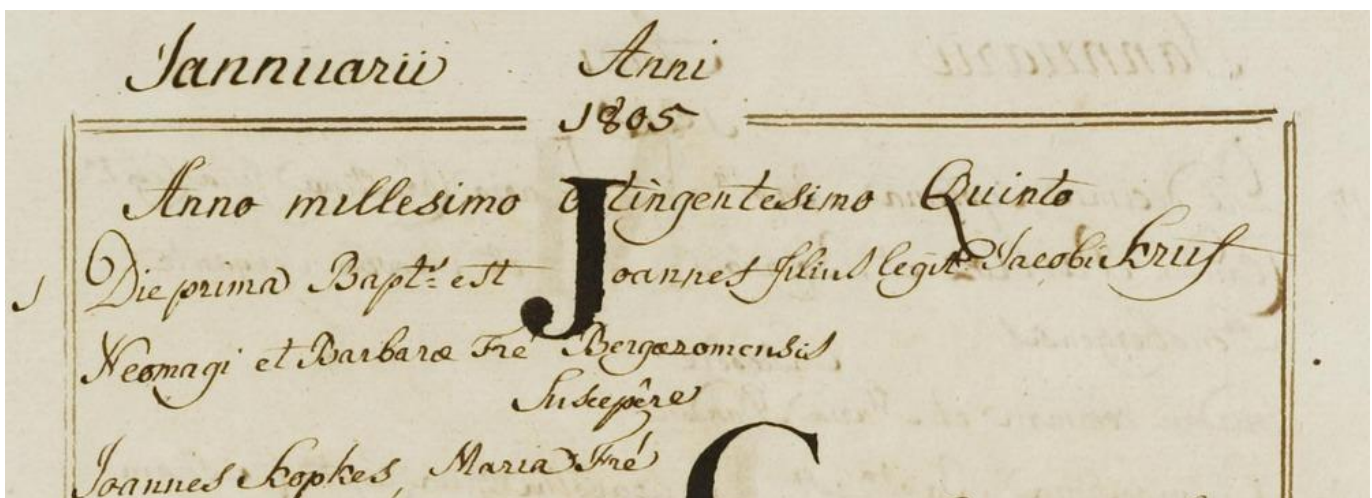 Jannuarii Anni
1805
Anno millesimo octingentesimo Quinto
1 Die prima Bapt.s est Joannes filius legit. Jacobi Krus
Neomagi et Barbaræ Fré Bergæzomensis
Suscepêre
Joannes Kopkes, Maria Fré